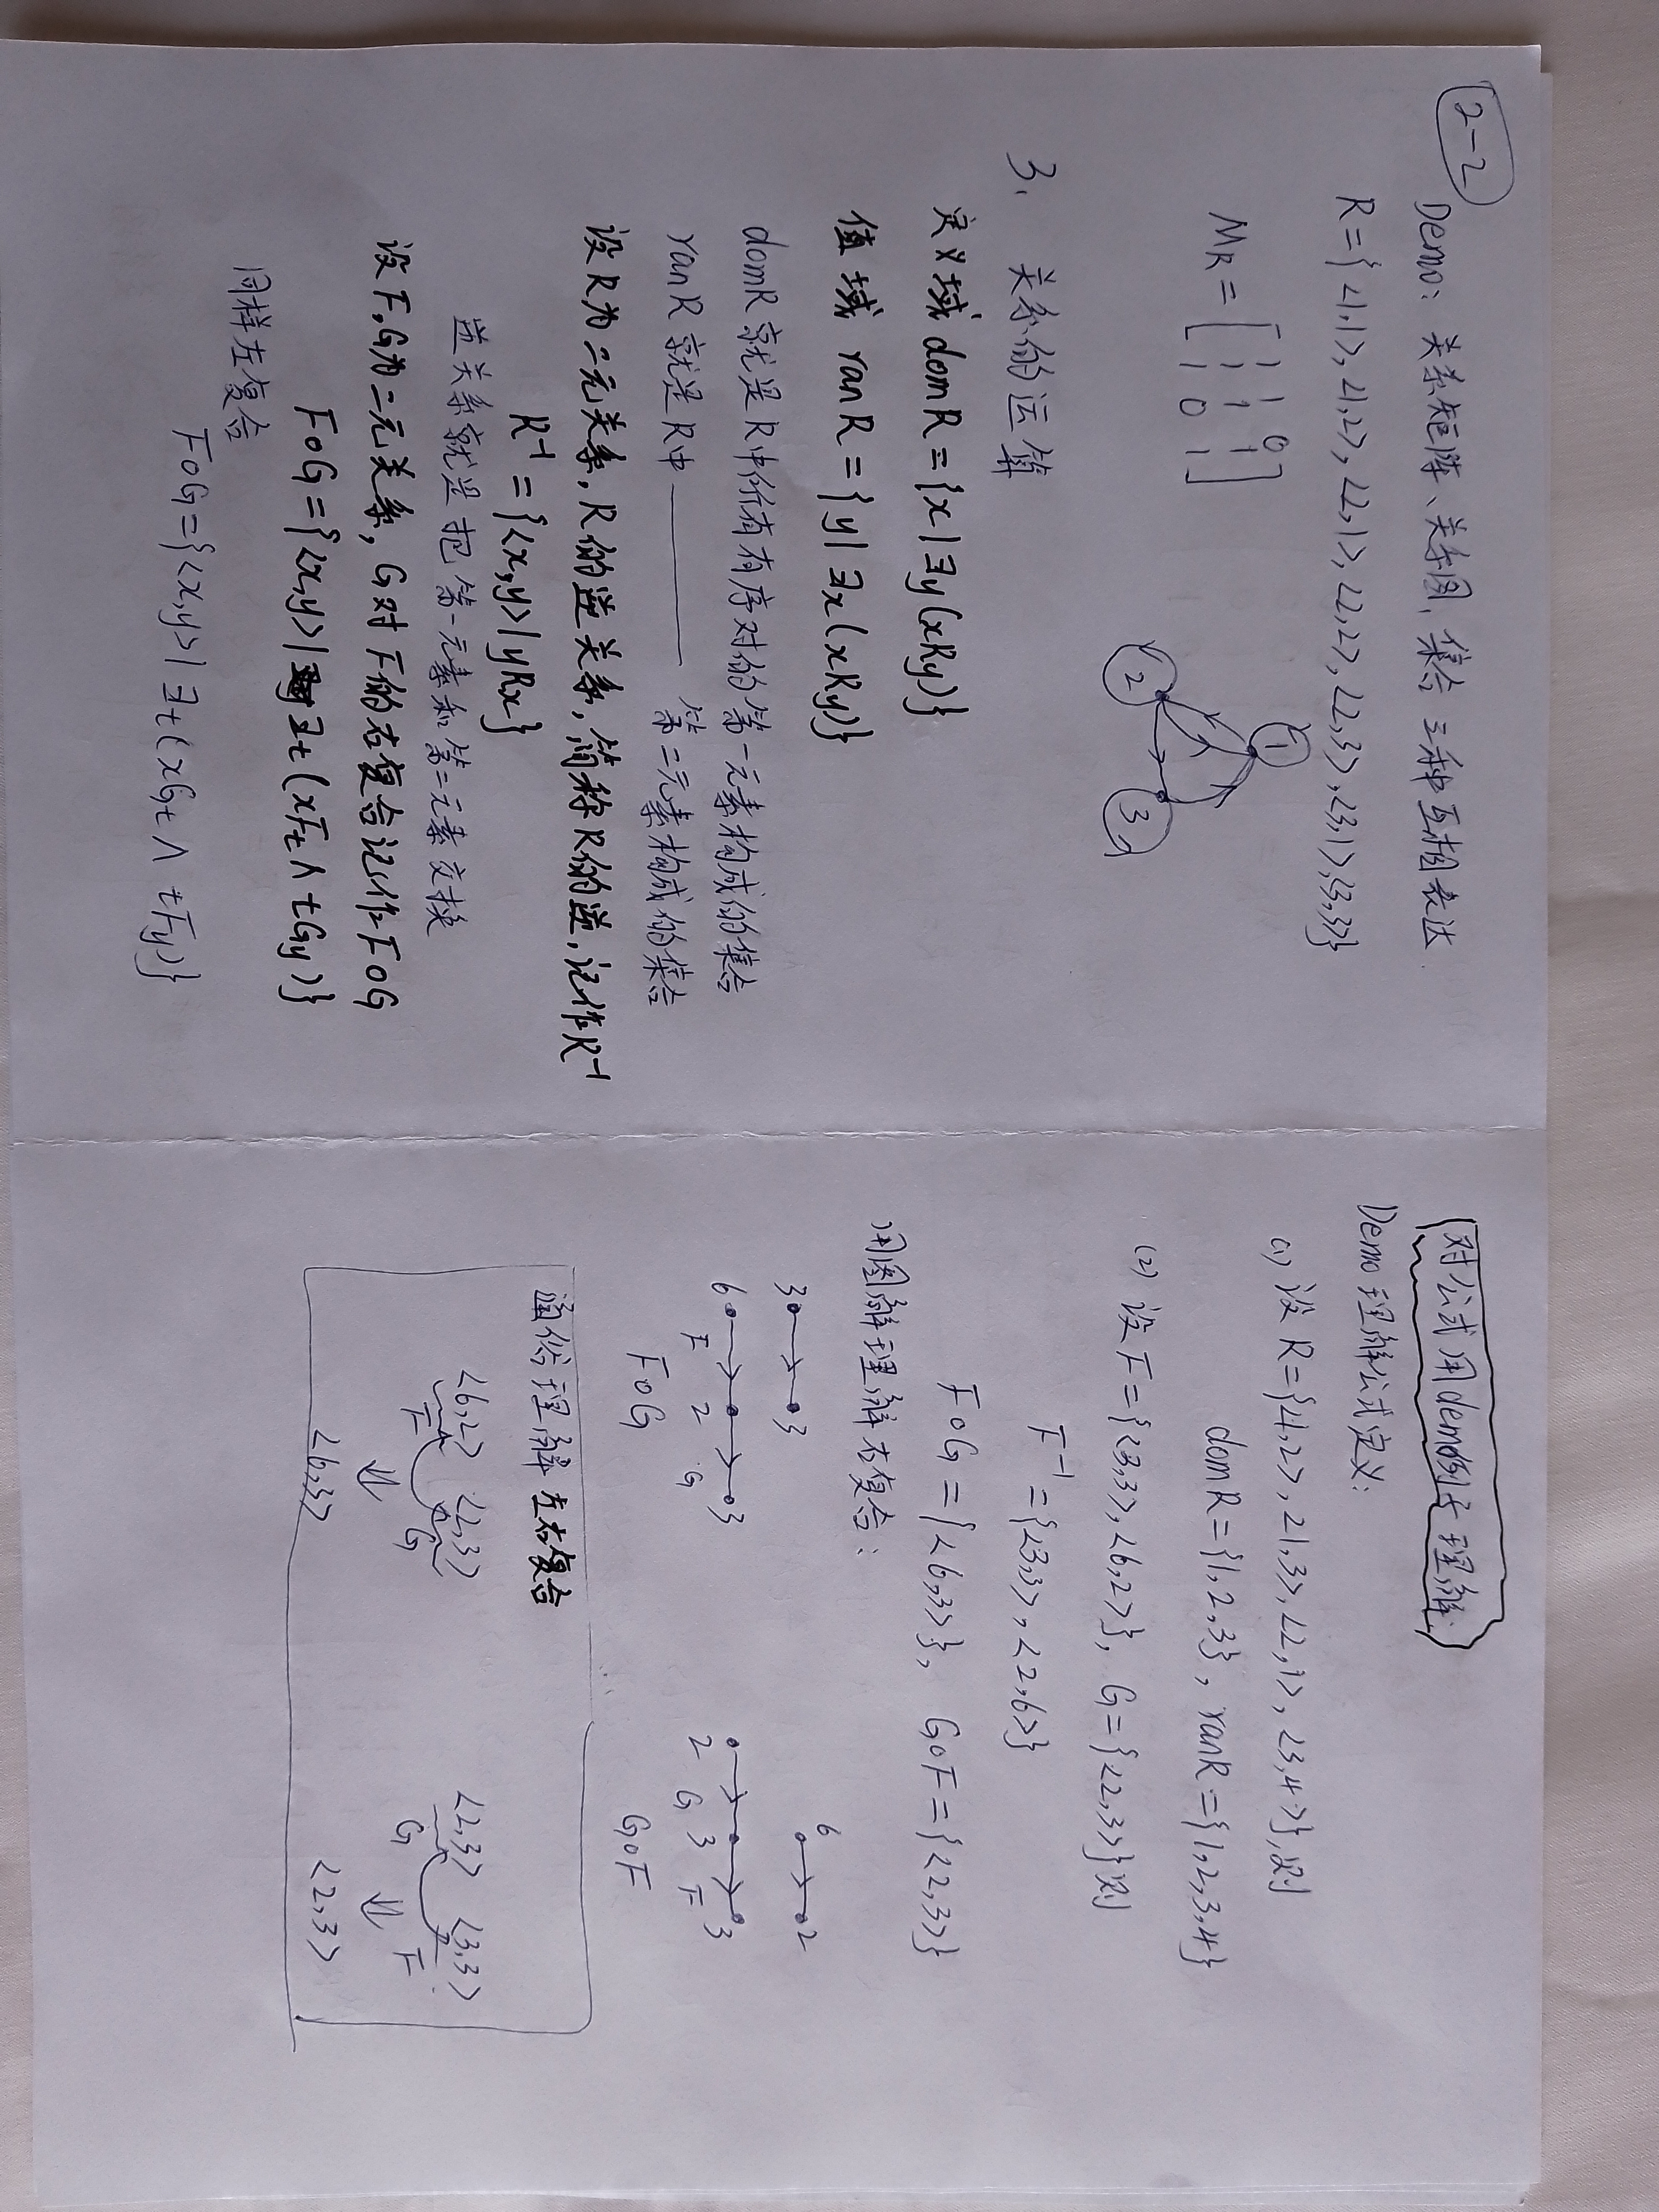 2-2
Demo: 关系矩阵、关系图、集合 三种互相表达.
R={<1,1>,<1,2>,<2,1>,<2,2>,<2,3>,<3,1>,<3,3>}
MR=[1 1 0
1 1 1
1 0 1]
1
2 3
3. 关系的运算
定义域 domR={x|∃y(xRy)}
值域 ranR={y|∃x(xRy)}
domR就是R中所有有序对的第一元素构成的集合
ranR就是R中———第二元素构成的集合
设R为二元关系,R的逆关系,简称R的逆,记作R⁻¹
R⁻¹={<x,y>|yRx}
逆关系就是把第一元素和第二元素交换
设F,G为二元关系,G对F的右复合记作F∘G
F∘G={<x,y>|∃t(xFt∧tGy)}
同样左复合
F∘G={<x,y>|∃t(xGt∧tFy)}
对公式用demo例子理解.
Demo理解公式定义:
(1) 设R={<1,2>,<1,3>,<2,1>,<3,4>},则
domR={1,2,3},ranR={1,2,3,4}
(2) 设F={<3,3>,<6,2>},G={<2,3>}则
F⁻¹={<3,3>,<2,6>}
F∘G={<6,3>},G∘F={<2,3>}
用图解理解右复合:
3 3 6 2
6 F 2 G 3 2 G 3 F 3
F∘G G∘F
通俗理解左右复合
<6,2> <2,3> <2,3> <3,3>
F G G F
⇓ ⇓
<6,3> <2,3>